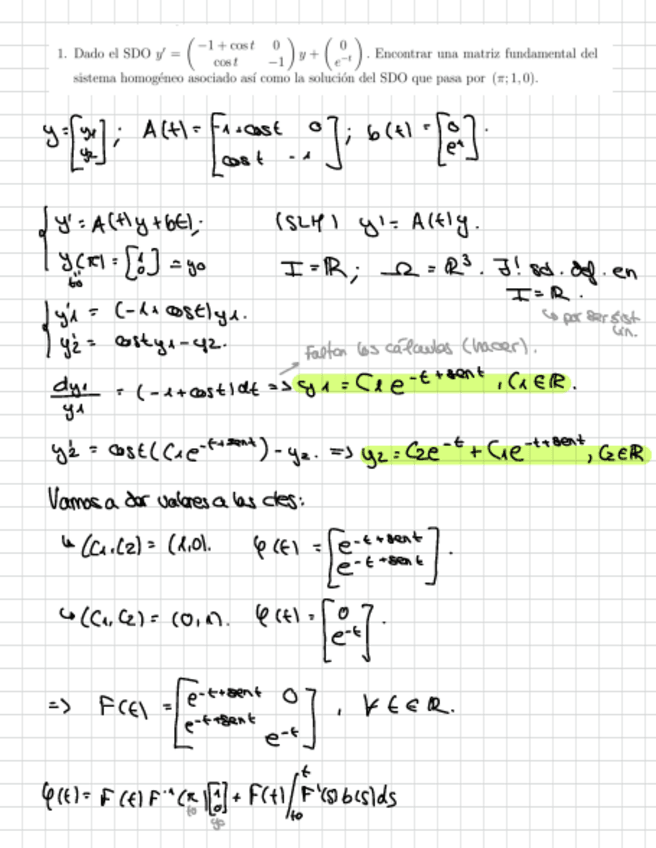 1. Dado el SDO y' = ( −1 + cos t 0 cos t −1 ) y + ( 0 e^{−t} ) . Encontrar una matriz fundamental del
sistema homogéneo asociado así como la solución del SDO que pasa por (π; 1, 0).
y = [y1 y2] ; A(t) = [-1+cost 0 cos t -1] ; b(t) = [0 e^t] .
{ y' = A(t)y + b(t); (SLH) y' = A(t)y.
y(π) = [1 0] = y0 I = ℝ; Ω = ℝ^3 . ∃! sol. def. en
t0 I = ℝ.
{ y1' = (-1+cost)y1. ↳ por ser sist
y2' = cost y1 - y2. lin.
Faltan los cálculos (hacer).
dy1/y1 = (-1+cost)dt => y1 = C1 e^{-t+sent} , C1 ∈ ℝ.
y2' = cost(C1e^{-t+sent}) - y2. => y2 = C2e^{-t} + C1e^{-t+sent} , C2 ∈ ℝ
Vamos a dar valores a las ctes:
↳ (C1, C2) = (1,0). φ(t) = [e^{-t+sent} e^{-t+sent}] .
↳ (C1, C2) = (0,1). φ(t) = [0 e^{-t}] .
=> F(t) = [e^{-t+sent} 0 e^{-t+sent} e^{-t}] , ∀ t ∈ ℝ.
φ(t) = F(t) F^{-1}(π) [1 0] + F(t) ∫_{t0}^{t} F^{-1}(s) b(s) ds
t0 y0